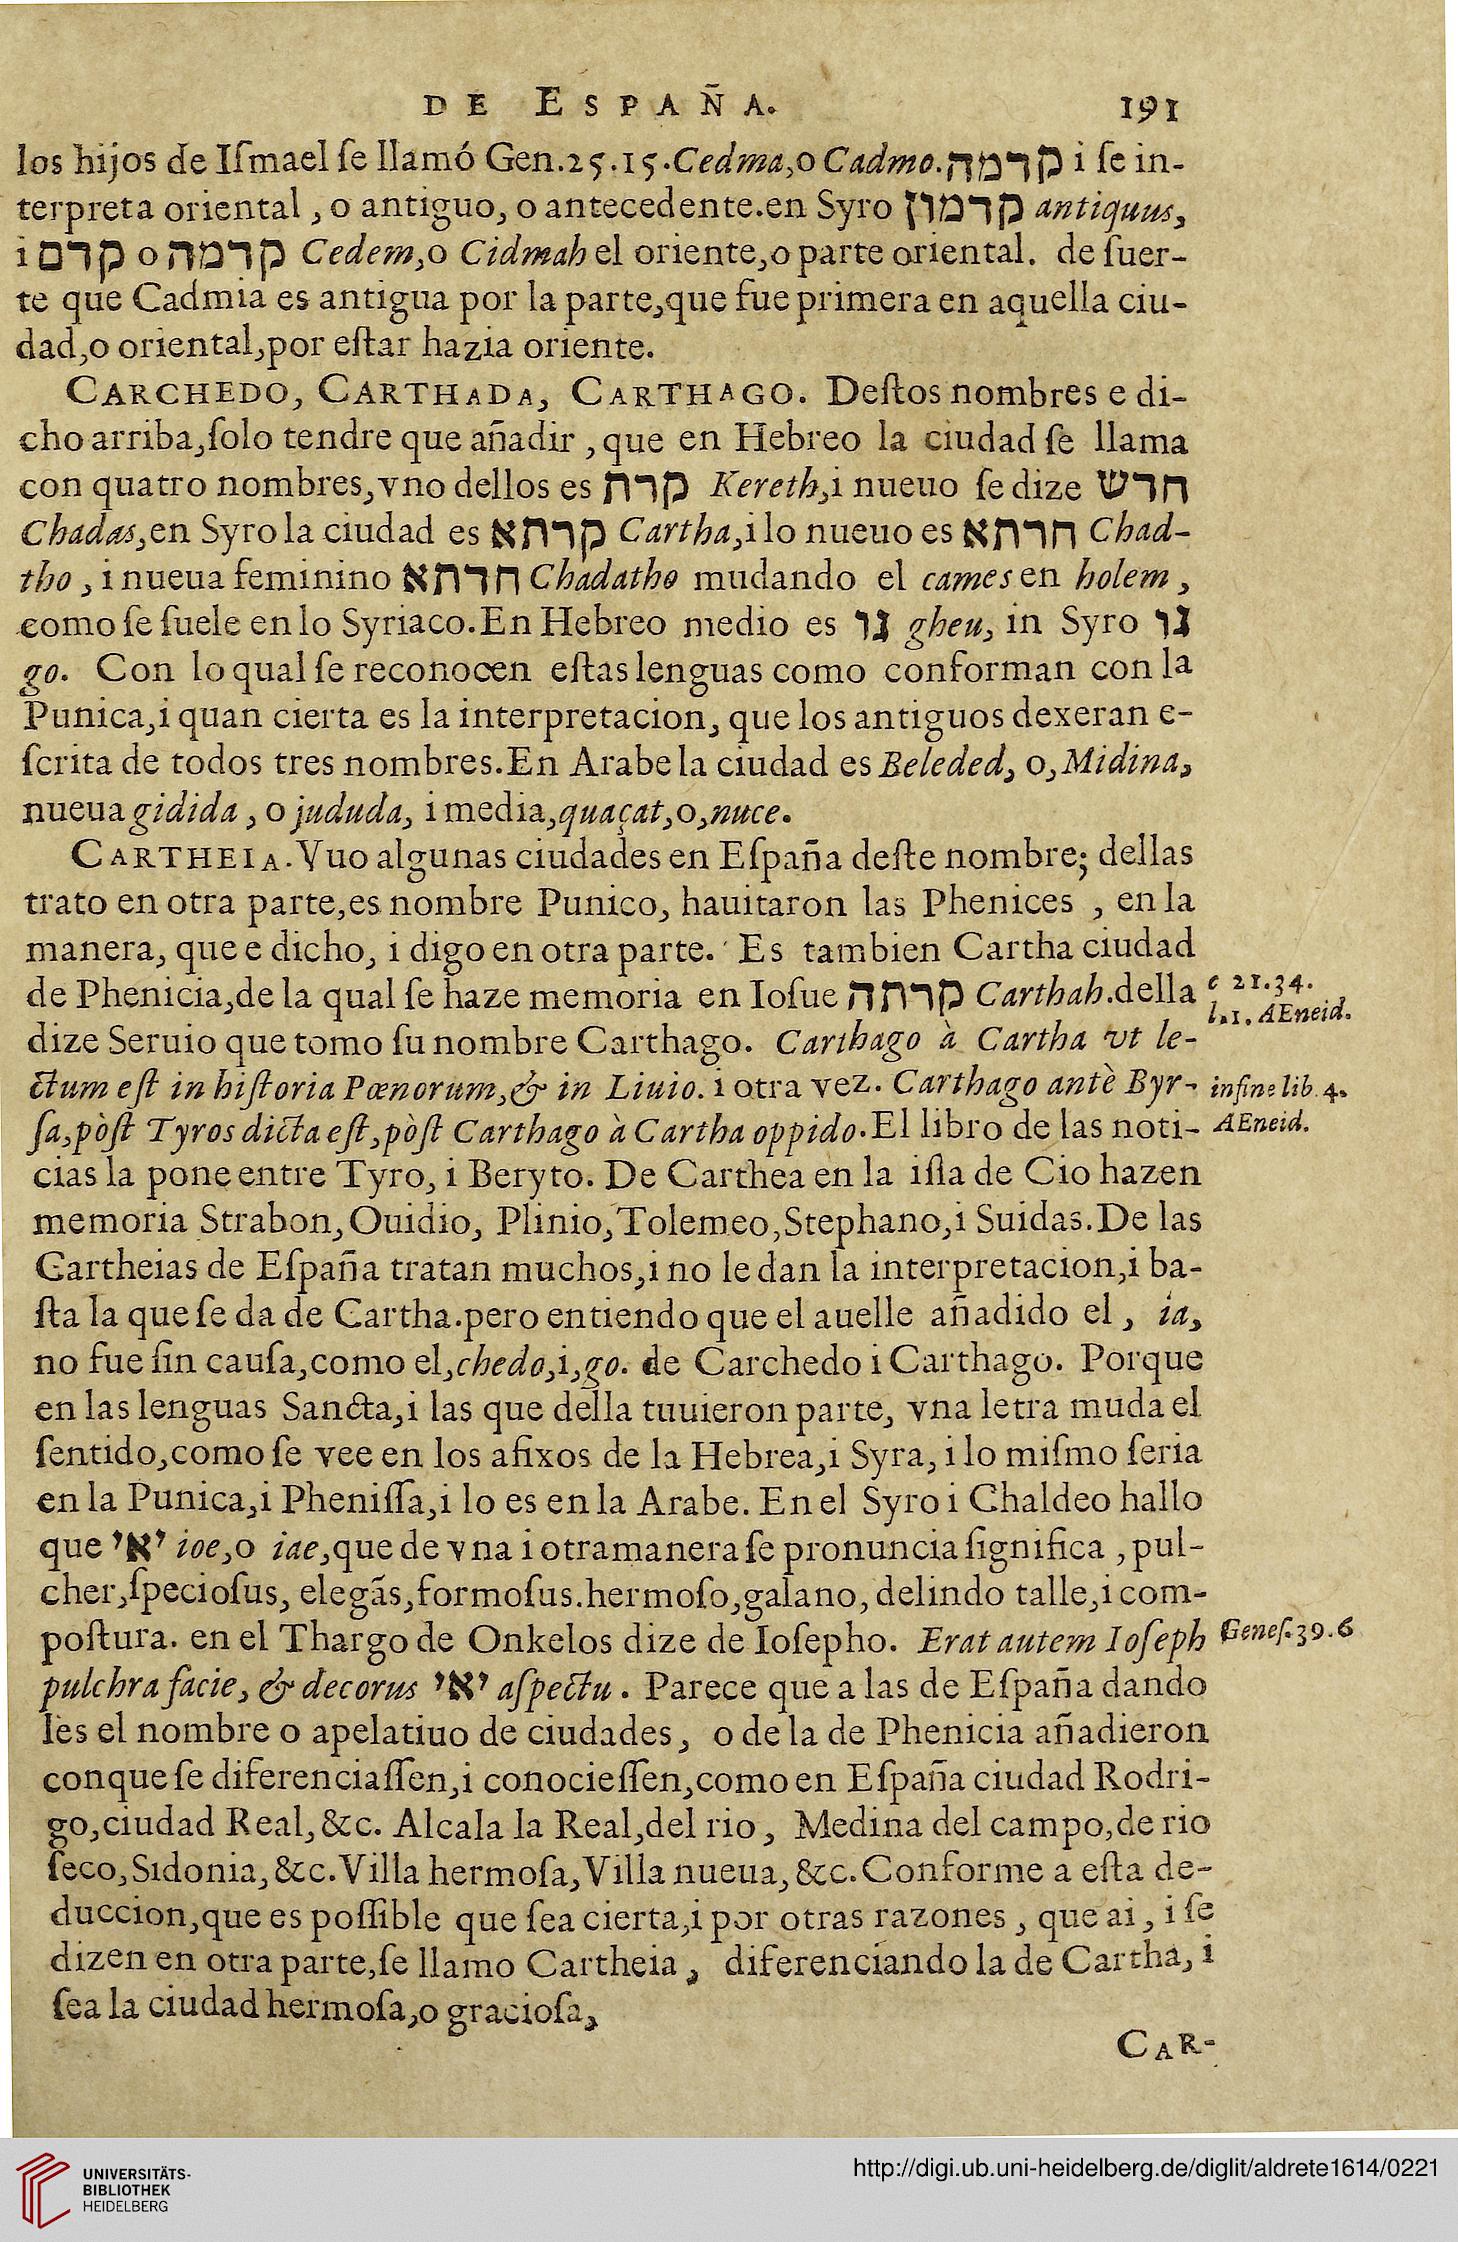 DE ESPAÑA. 191
los hijos de Iſmael ſe llamó Gen.25.15.Cedma,o Cadmo.קדמה i ſe in-
terpreta oriental , o antiguo, o antecedente.en Syro קדמון antiquus,
i קדם o קדמה Cedem,o Cidmah el oriente,o parte oriental. de ſuer-
te que Cadmia es antigua por la parte,que fue primera en aquella ciu-
dad,o oriental,por eſtar hazia oriente.
CARCHEDO, CARTHADA, CARTHAGO. Deſtos nombres e di-
cho arriba,ſolo tendre que añadir , que en Hebreo la ciudad ſe llama
con quatro nombres,vno dellos es קרת Kereth,i nueuo ſe dize חדש
Chadas,en Syro la ciudad es קרתא Cartha,i lo nueuo es חדתא Chad-
tho , i nueua feminino חדתא Chadatho mudando el cames en holem ,
como ſe ſuele en lo Syriaco.En Hebreo medio es גו gheu, in Syro גו
go. Con lo qual ſe reconocen eſtas lenguas como conforman con la
Punica,i quan cierta es la interpretacion, que los antiguos dexeran e-
ſcrita de todos tres nombres.En Arabe la ciudad es Beleded, o,Midina,
nueua gidida , o jududa, i media,quaçat,o,nuce.
CARTHEIA.Vuo algunas ciudades en Eſpaña deſte nombre; dellas
trato en otra parte,es nombre Punico, hauitaron las Phenices , en la
manera, que e dicho, i digo en otra parte. Es tambien Cartha ciudad
de Phenicia,de la qual ſe haze memoria en Ioſue קרתה Carthah.della
c 21.34.
l.1. AEneid.
dize Seruio que tomo ſu nombre Carthago. Carthago à Cartha vt le-
ctum eſt in hiſtoria Pœnorum,& in Liuio. i otra vez. Carthago antè Byr-
in fine lib. 4.
ſa,pòſt Tyros dicta eſt,pòſt Carthago à Cartha oppido.El libro de las noti-
AEneid.
cias la pone entre Tyro, i Beryto. De Carthea en la iſla de Cio hazen
memoria Strabon,Ouidio, Plinio,Tolemeo,Stephano,i Suidas.De las
Cartheias de Eſpaña tratan muchos,i no le dan la interpretacion,i ba-
ſta la que ſe da de Cartha.pero entiendo que el auelle añadido el , ia,
no fue ſin cauſa,como el,chedo,i,go. de Carchedo i Carthago. Porque
en las lenguas Sancta,i las que della tuuieron parte, vna letra muda el
ſentido,como ſe vee en los afixos de la Hebrea,i Syra, i lo miſmo ſeria
en la Punica,i Pheniſſa,i lo es en la Arabe. En el Syro i Chaldeo hallo
que יאי ioe,o iae,que de vna i otra manera ſe pronuncia ſignifica , pul-
cher,ſpecioſus, elegãs,formoſus.hermoſo,galano, de lindo talle,i com-
poſtura. en el Thargo de Onkelos dize de Ioſepho. Erat autem Ioſeph
Geneſ.39.6
pulchra facie, & decorus יאי aſpectu . Parece que a las de Eſpaña dando
les el nombre o apelatiuo de ciudades, o de la de Phenicia añadieron
con que ſe diferenciaſſen,i conocieſſen,como en Eſpaña ciudad Rodri-
go,ciudad Real,&c. Alcala la Real,del rio, Medina del campo,de rio
ſeco,Sidonia,&c.Villa hermoſa,Villa nueua,&c.Conforme a eſta de-
duccion,que es poſſible que ſea cierta,i por otras razones , que ai, i ſe
dizen en otra parte,ſe llamo Cartheia , diferenciando la de Cartha, i
ſea la ciudad hermoſa,o gracioſa,
CAR-
UNIVERSITÄTS-
BIBLIOTHEK
HEIDELBERG
http://digi.ub.uni-heidelberg.de/diglit/aldrete1614/0221